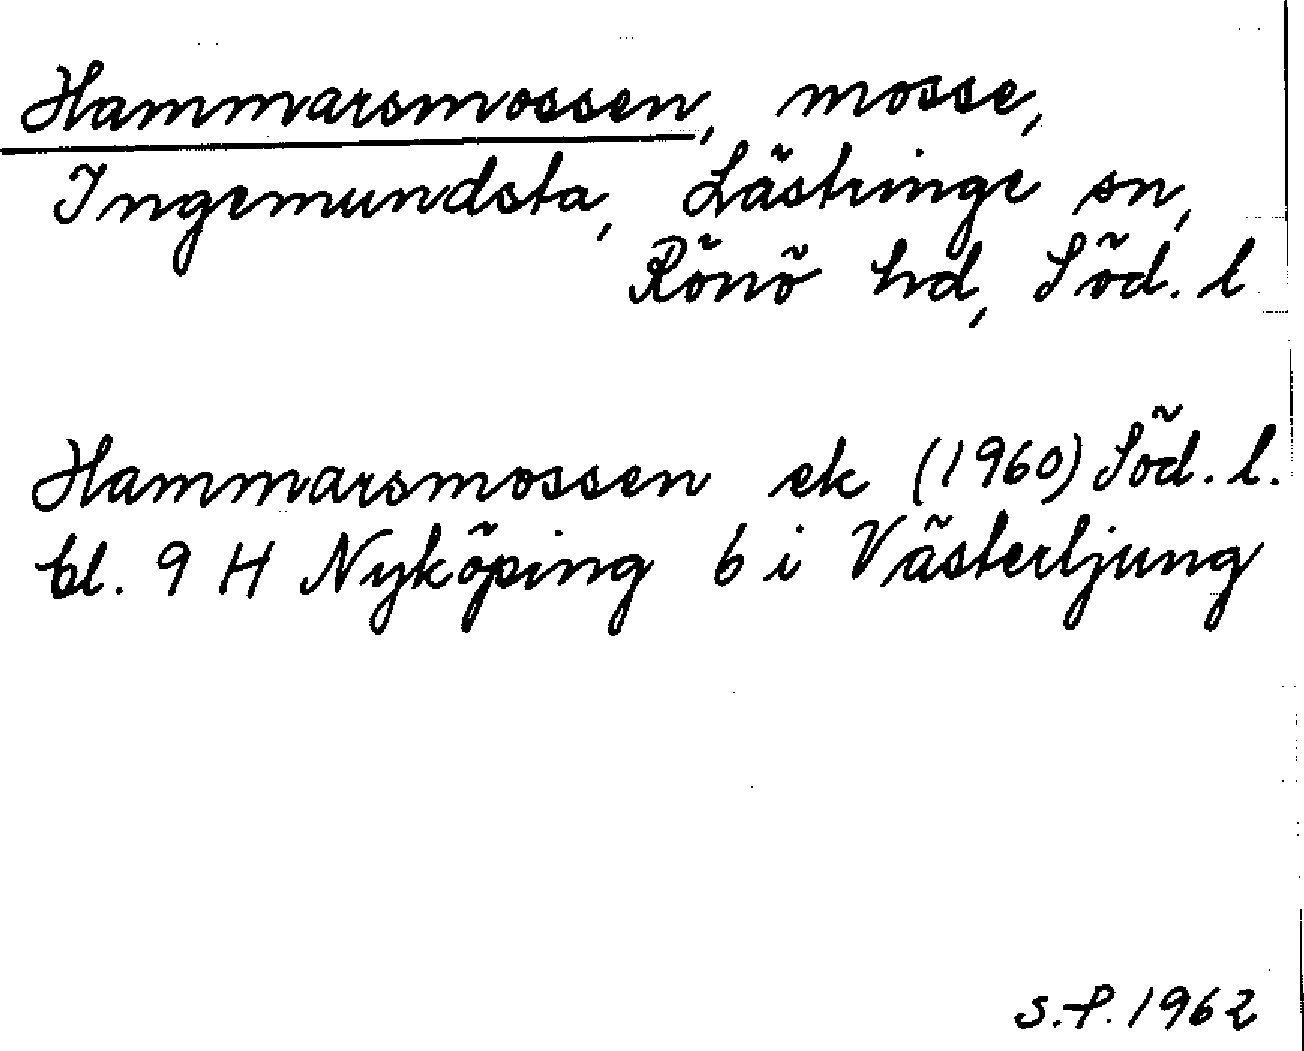 Hammarsmossen, mosse,
Ingemundsta, Lästringe sn,
Rönö hd, Söd. l
Hammarsmossen ek (1960) Söd. l.
bl. 9 H Nyköping 6 i Västerljung
S.P. 1962